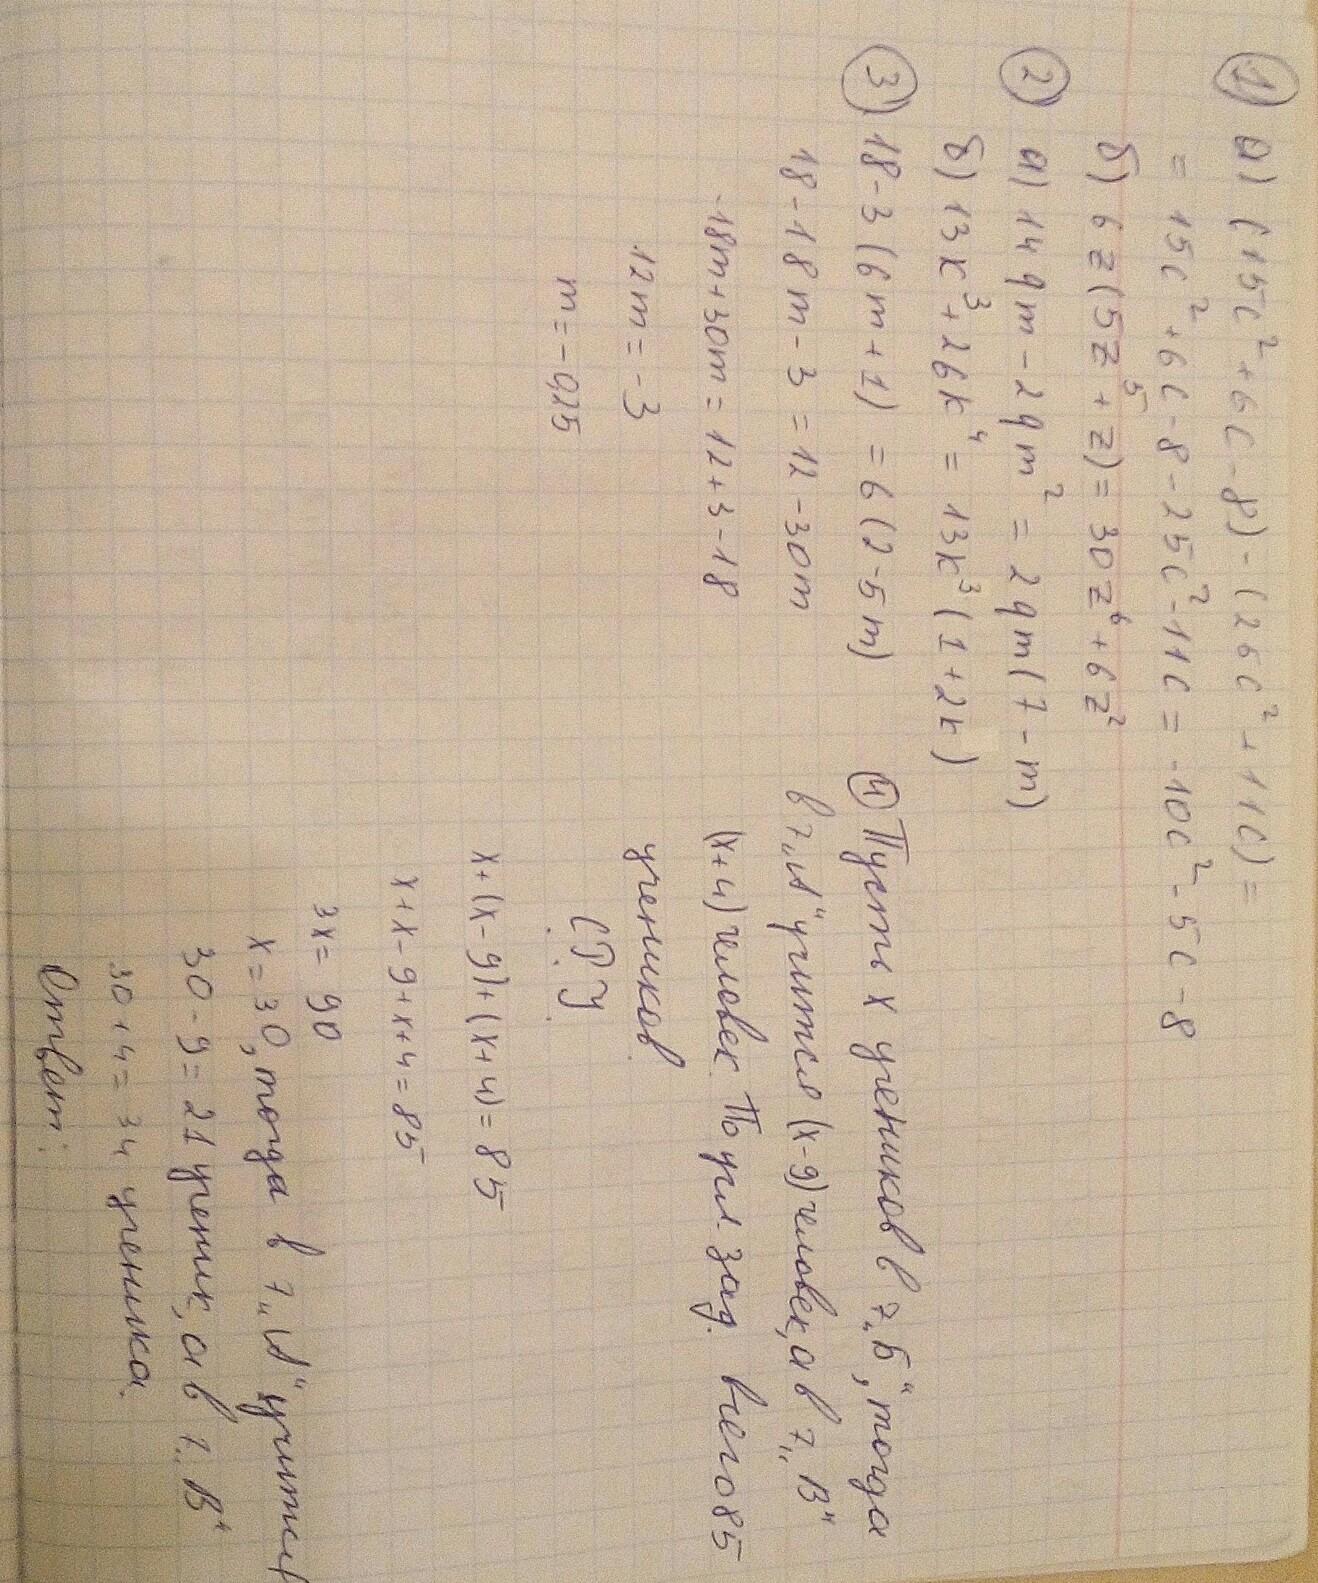 1) а) (15c²+6c-8)-(25c²+11c)=
= 15c²+6c-8-25c²-11c = -10c²-5c-8
б) 6z(5z⁵+z)=30z⁶+6z²
2) а) 14qm-2qm²=2qm(7-m)
б) 13k³+26k⁴=13k³(1+2k)
3) 18-3(6m+1)=6(2-5m)
18-18m-3=12-30m
-18m+30m=12+3-18
12m=-3
m=-0,25
4) Пусть x учеников в 7„Б", тогда
в 7„А" учится (x-9) человек, а в 7„В"
(x+4) человек. По усл. зад. всего 85
учеников.
С.Р.У.
x+(x-9)+(x+4)=85
x+x-9+x+4=85
3x=90
x=30, тогда в 7„А" учится
30-9=21 ученик, а в 7„В"
30+4=34 ученика.
Ответ: